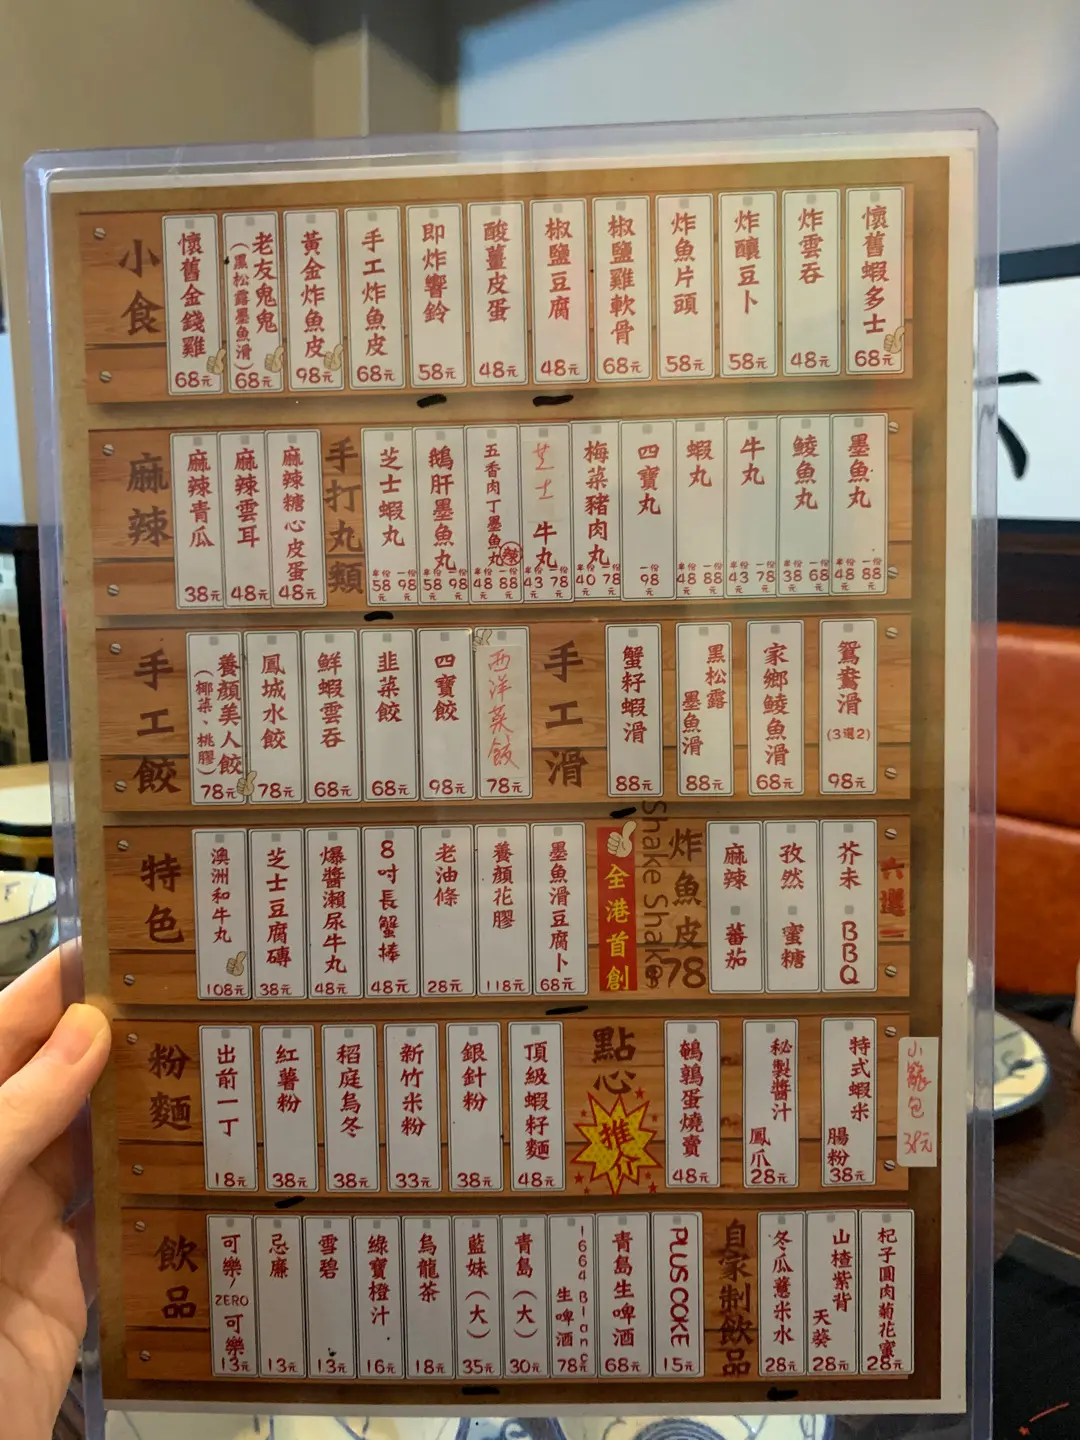 小食
懷舊金錢雞
68元
老友鬼鬼
(黑松露墨魚滑)
68元
黃金炸魚皮
98元
手工炸魚皮
68元
即炸響鈴
58元
酸薑皮蛋
48元
椒鹽豆腐
48元
椒鹽雞軟骨
68元
炸魚片頭
58元
炸釀豆卜
58元
炸雲吞
48元
懷舊蝦多士
68元
麻辣
麻辣青瓜
38元
麻辣雲耳
48元
麻辣糖心皮蛋
48元
手打丸類
芝士蝦丸
半份 58元 一份 98
鵝肝墨魚丸
半份 58元 一份 98
五香肉丁墨魚丸
半份 48元 一份 88
芝士牛丸
半份 43元 一份 78
梅菜豬肉丸
半份 40元 一份 78
四寶丸
一份 98元
蝦丸
半份 48元 一份 88
牛丸
半份 43元 一份 78
鯪魚丸
半份 38元 一份 68
墨魚丸
半份 48元 一份 88
手工餃
養顏美人餃
(椰菜、桃膠)
78元
鳳城水餃
78元
鮮蝦雲吞
68元
韭菜餃
68元
四寶餃
98元
西洋菜餃
78元
手工滑
蟹籽蝦滑
88元
黑松露
墨魚滑
88元
家鄉鯪魚滑
68元
鴛鴦滑
(3選2)
98元
特色
澳洲和牛丸
108元
芝士豆腐磚
38元
爆醬瀨尿牛丸
48元
8吋長蟹棒
48元
老油條
28元
養顏花膠
118元
墨魚滑豆腐卜
68元
全港首創
Shake Shake
炸魚皮
$78
麻辣
蕃茄
孜然
蜜糖
芥末
BBQ
六選二
粉麵
出前一丁
18元
紅薯粉
38元
稻庭烏冬
38元
新竹米粉
33元
銀針粉
38元
頂級蝦籽麵
48元
點心
推介
鵪鶉蛋燒賣
48元
秘製醬汁
鳳爪
28元
特式蝦米
腸粉
38元
小籠包
38元
飲品
可樂/
ZERO
可樂
13元
忌廉
13元
雪碧
13元
綠寶橙汁
16元
烏龍茶
18元
藍妹(大)
35元
青島(大)
30元
1664 Blanc
生啤酒
78元
青島生啤酒
68元
PLUS COOKE
15元
自家制飲品
冬瓜薏米水
28元
山楂紫背
天葵
28元
杞子圓肉菊花蜜
28元